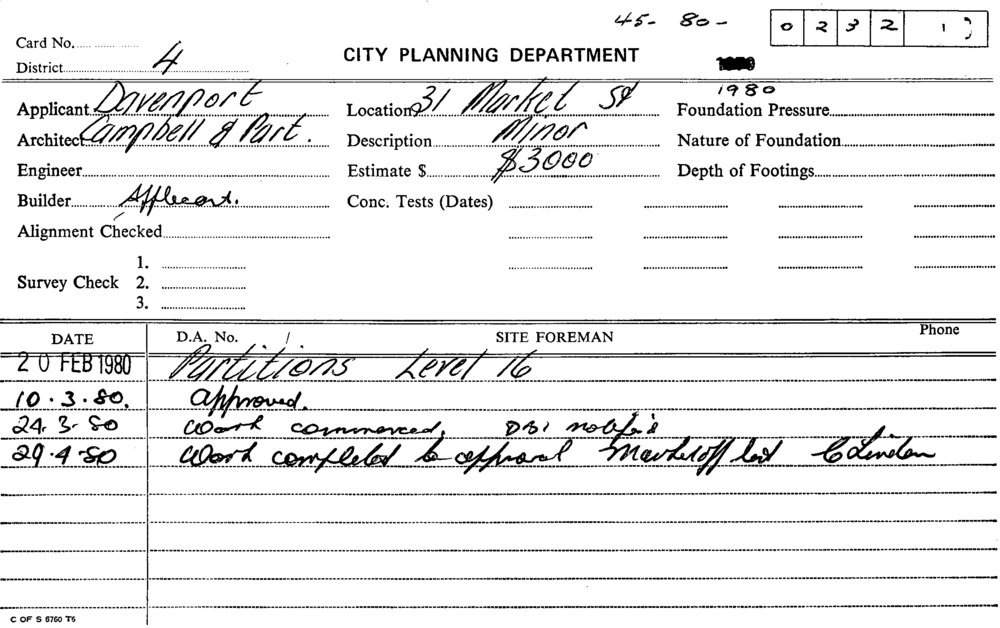 45- 80- 0 2 3 2 1
Card No.
District 4
CITY PLANNING DEPARTMENT
1980
Applicant Davenport Location 31 Market St Foundation Pressure
Architect Campbell & Part. Description Minor Nature of Foundation
Engineer Estimate $ $3000 Depth of Footings
Builder Applicant. Conc. Tests (Dates)
Alignment Checked
1.
Survey Check 2.
3.
DATE D.A. No. SITE FOREMAN Phone
20 FEB 1980 Partitions Level 16
10.3.80. approved.
24.3.80 Work commenced. DBI notif'd
29.4.80 Work completed to approval
C OF S 8760 T6